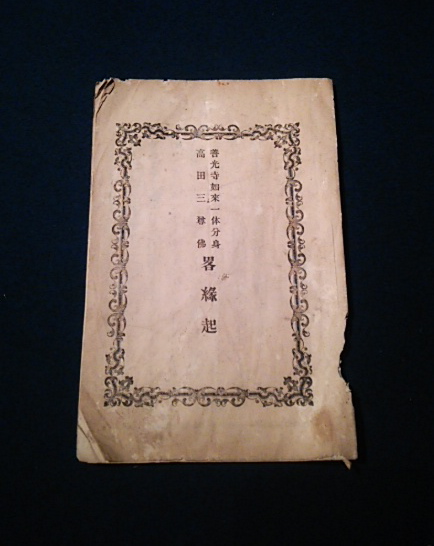 善光寺如來一体分身
高田三尊佛
畧緣起